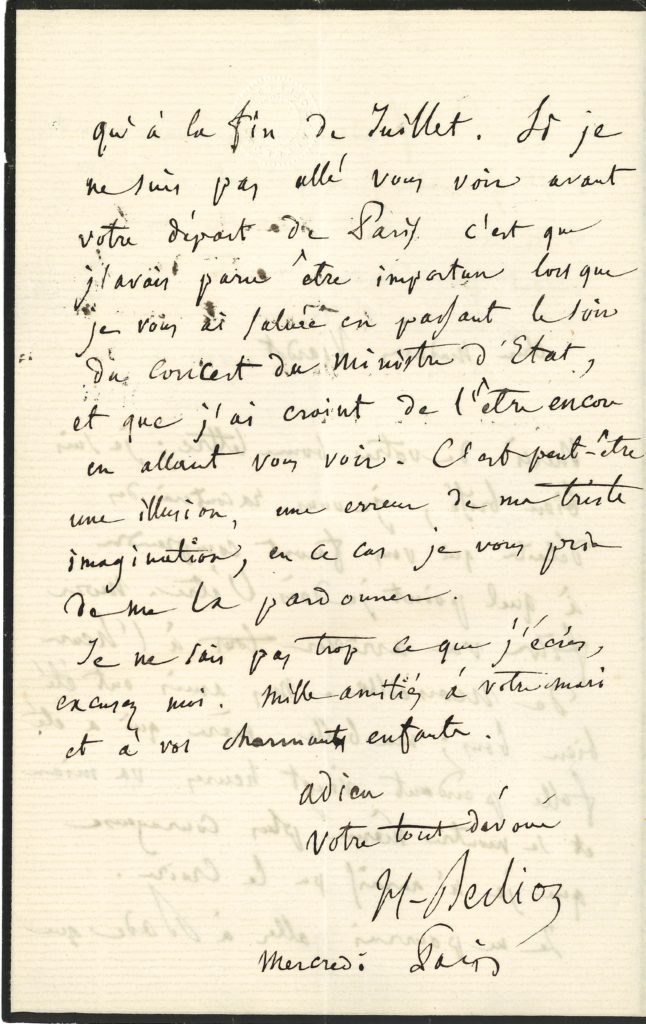 qu'à la fin de Juillet. Si je
ne suis pas allé vous voir avant
votre départ de Paris c'est que
j'avais parue être importun lorsque
je vous ai saluée en passant le soir
du concert du Ministre d'Etat,
et que j'ai craint de l'être encore
en allant vous voir. C'est peut-être
une illusion, une erreur de ma triste
imagination, en ce cas je vous prie
de me la pardonner.
Je ne sais pas trop ce que j'écris,
excusez moi. Mille amitiés à votre mari
et à vos charmants enfants.
adieu
votre tout dévoué
H. Berlioz
Mercredi Paris